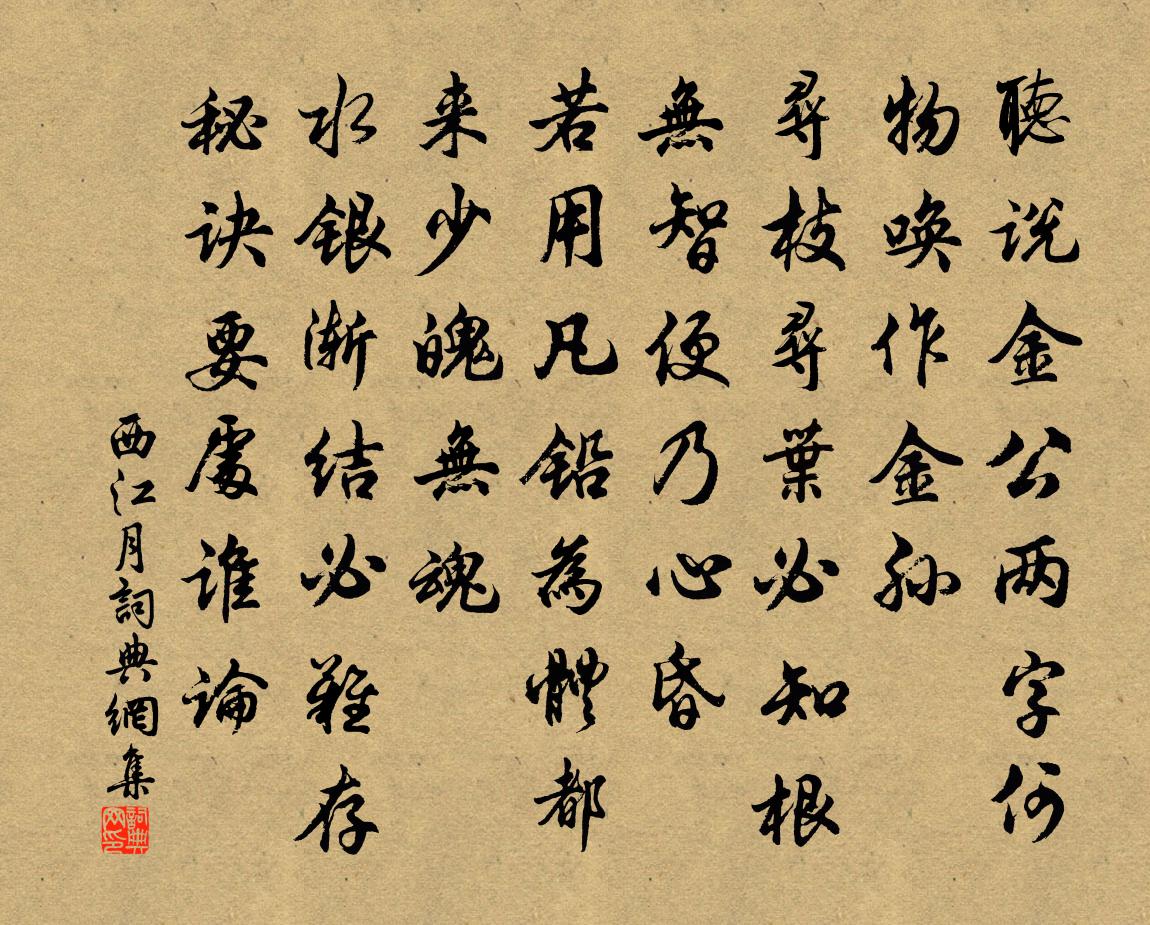 聽说金公两字何
物唤作金孙
尋枝尋葉必知根
無智便乃心昏
若用凡铅為體都
来少魄無魂
水银渐结必難存
秘诀要處谁論
西江月詞典網集
詞典网印